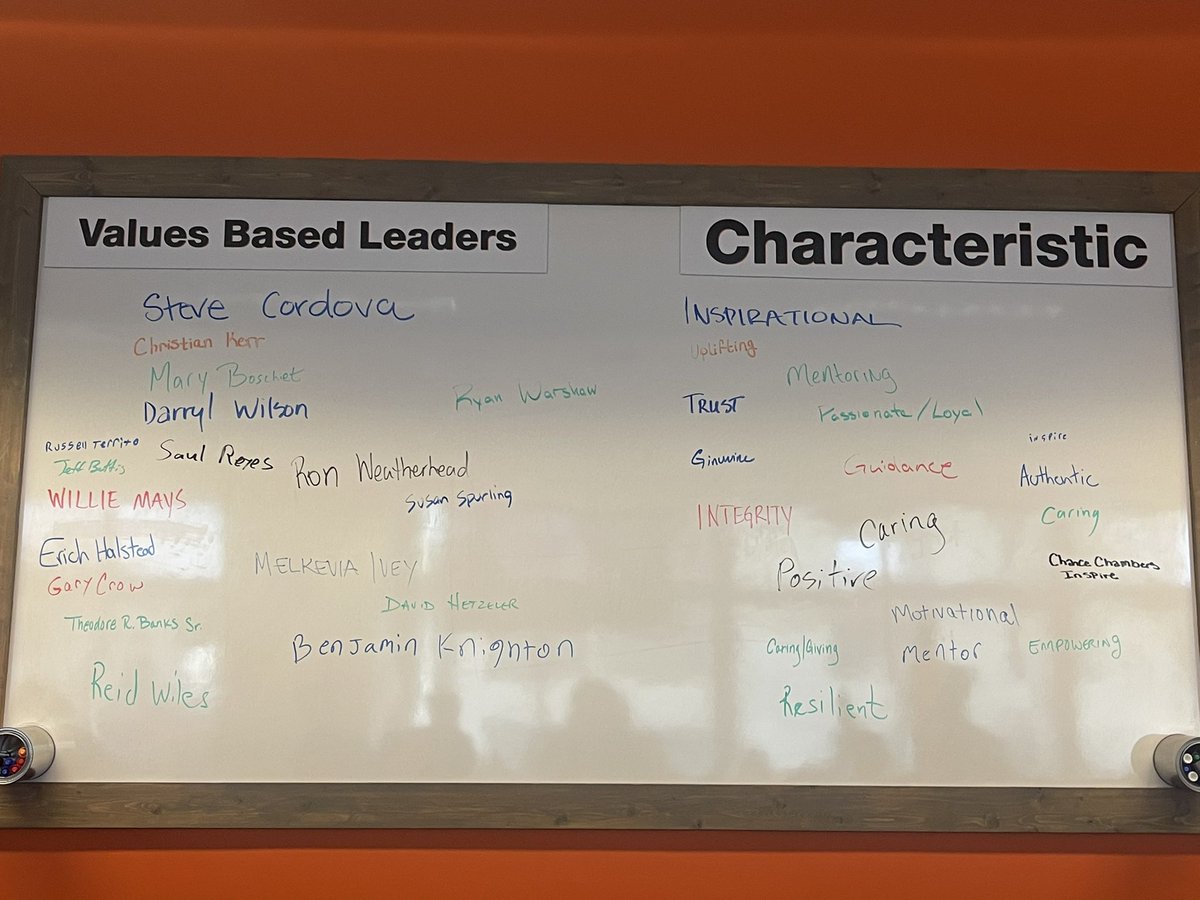 Values Based Leaders
Steve Cordova
Christian Kerr
Mary Boschet
Ryan Warshaw
Darryl Wilson
Russell Territo
Saul Reyes
Jeff Bettis
Ron Weatherhead
WILLIE MAYS
Susan Spurling
Erich Halstead
MELKEVIA IVEY
Gary Crow
DAVID HETZELER
Theodore R. Banks Sr.
Benjamin Knighton
Reid Wiles
Characteristic
INSPIRATIONAL
Uplifting
Mentoring
TRUST
Passionate/Loyal
inspire
Ginuwine
Guidance
Authentic
INTEGRITY
Caring
Caring
Chance Chambers
Inspire
Positive
Motivational
Caring/Giving
Mentor
EMPOWERING
Resilient